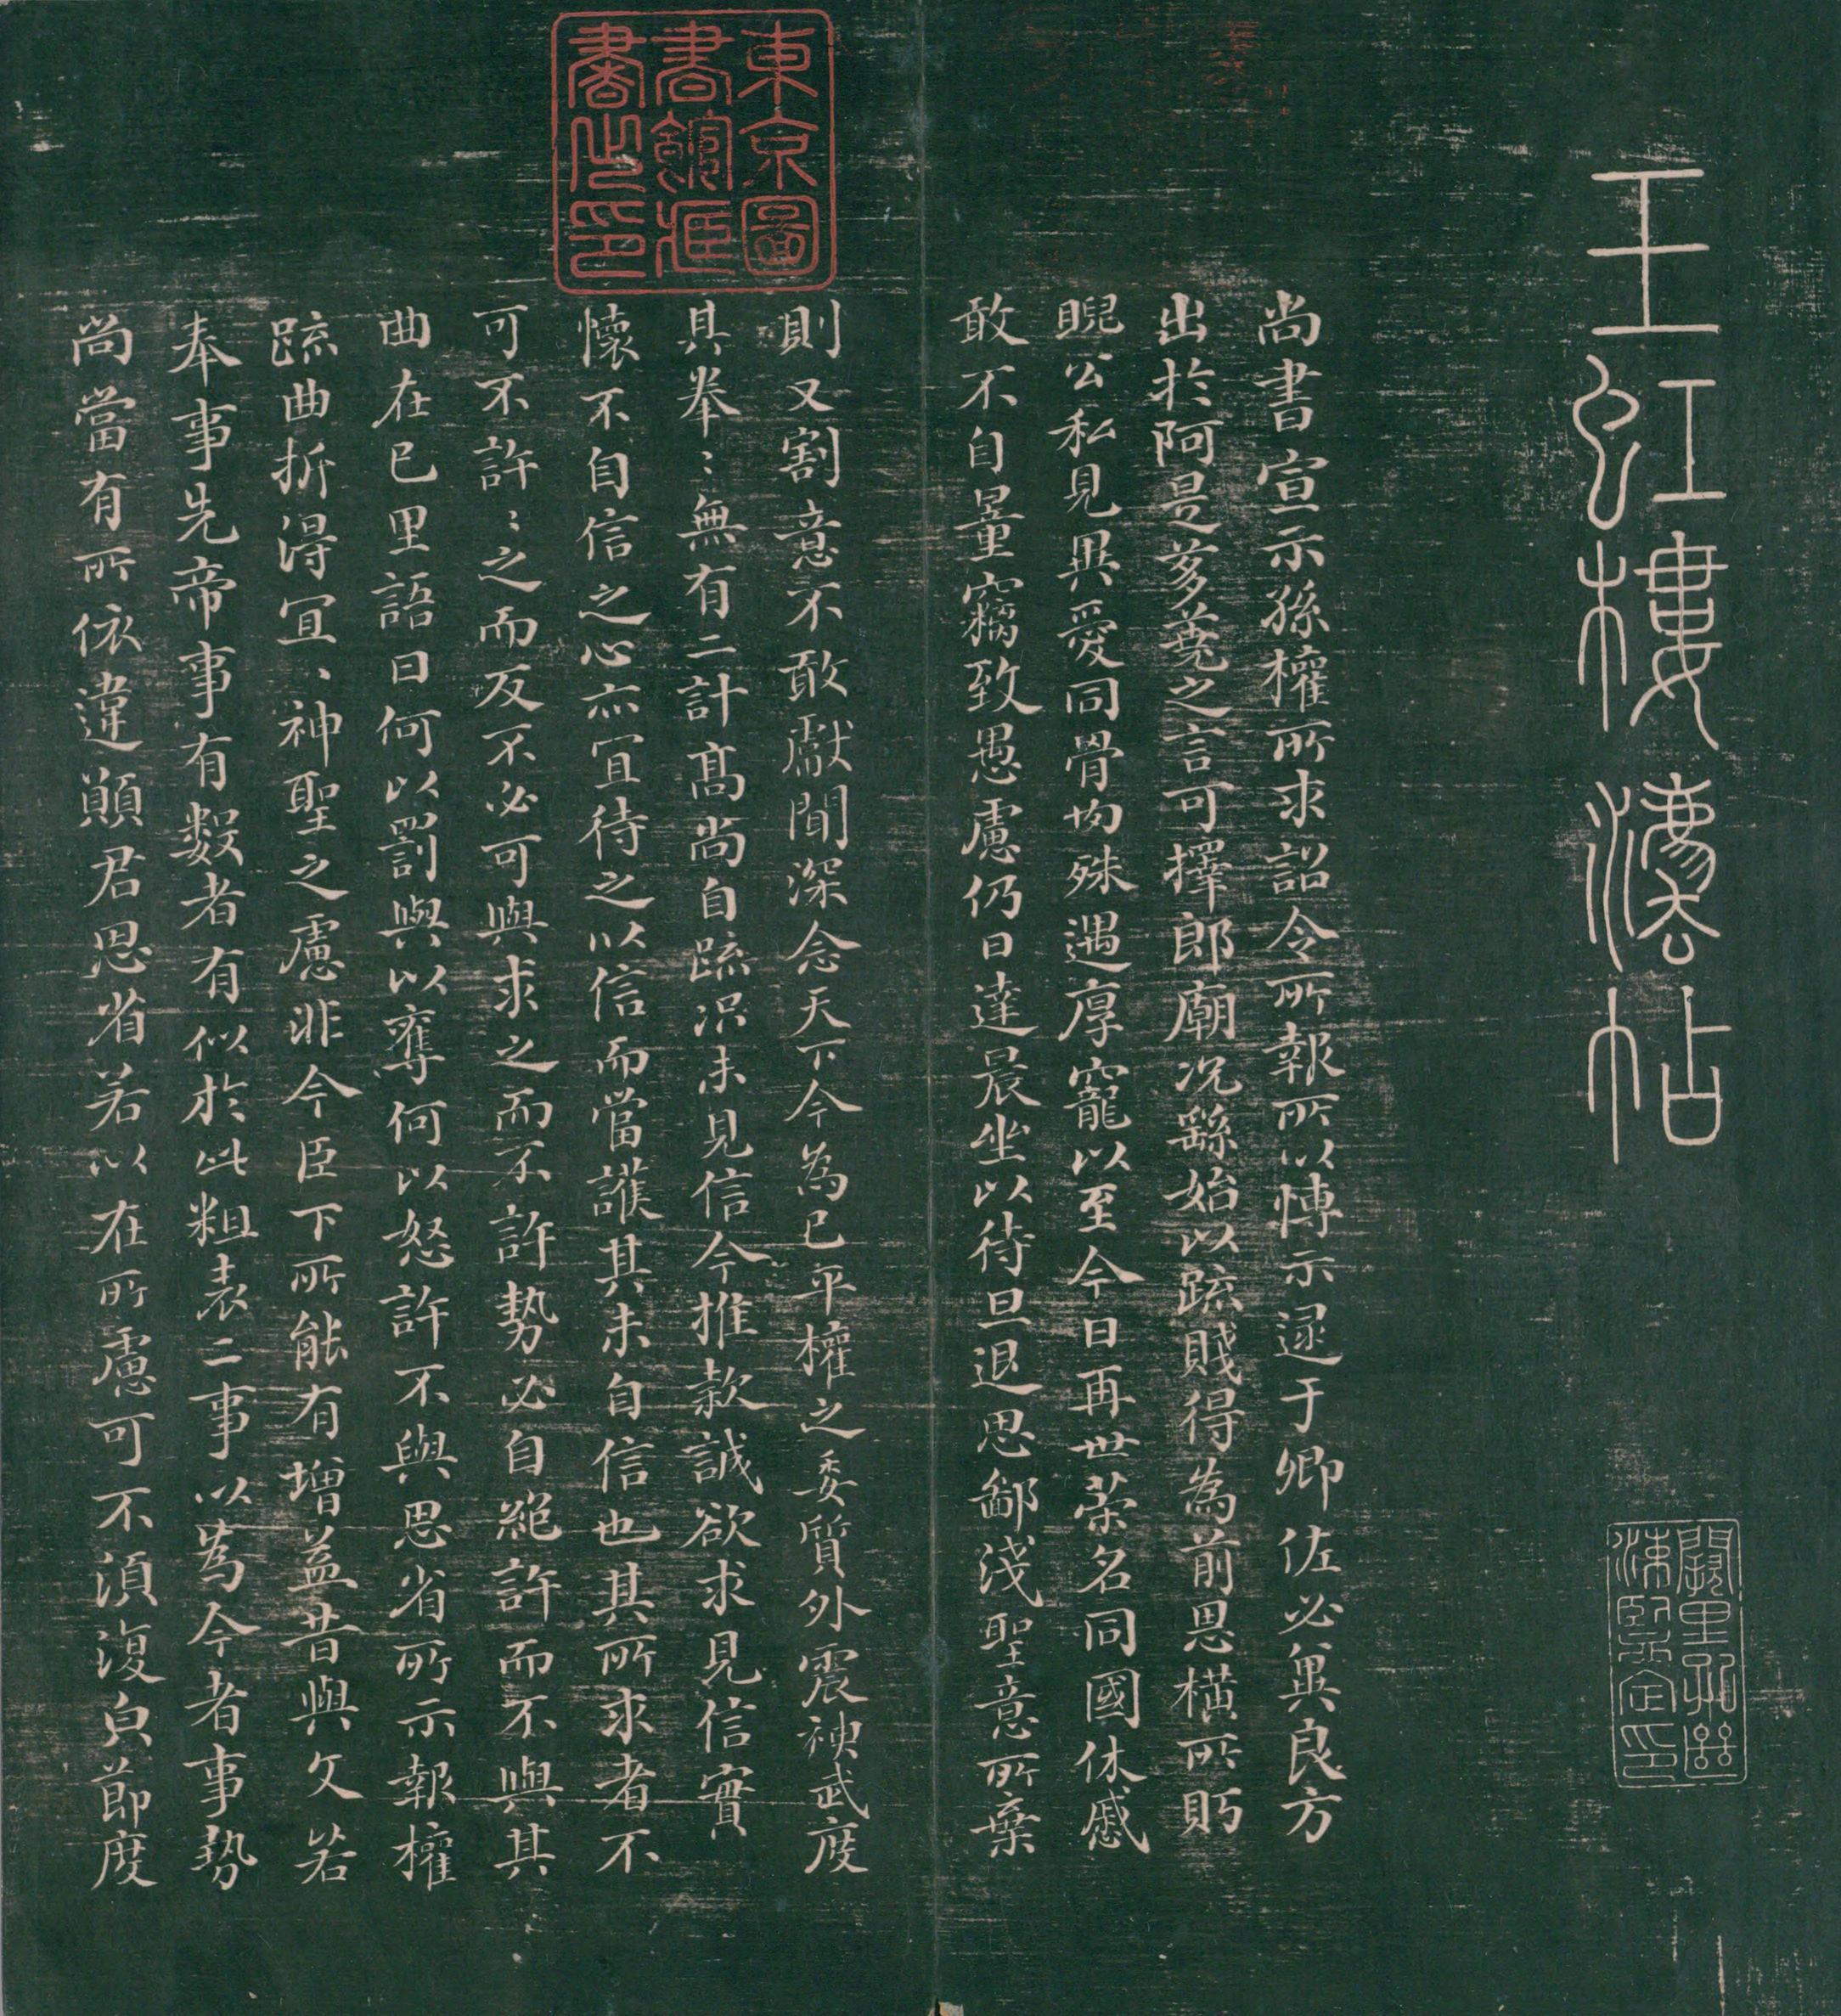 玉虹樓法帖
闕里孔繼
涑臨定印
尚書宣示孫權所求詔令所報所以博示逮于卿佐必冀良方
出於阿是芻蕘之言可擇郎廟況繇始以疏賤得為前恩橫所眄
睨公私見異愛同骨肉殊遇厚寵以至今日再世榮名同國休慼
敢不自量竊致愚慮仍日達晨坐以待旦退思鄙淺聖意所棄
則又割意不敢獻聞深念天下今為已平權之委質外震神武度
其拳〻無有二計高尚自疏況未見信今推款誠欲求見信實
懷不自信之心亦宜待之以信而當護其未自信也其所求者不
可不許〻之而反不必可與求之而不許勢必自絕許而不與其
曲在己里語曰何以罰與以奪何以怒許不與思省所示報權
疏曲折得宜〻神聖之慮非今臣下所能有增益昔與文若
奉事先帝事有數者有似於此粗表二事以為今者事勢
尚當有所依違願君思省若以在所慮可不須復貟節度
東京圖
書館藏
書之印